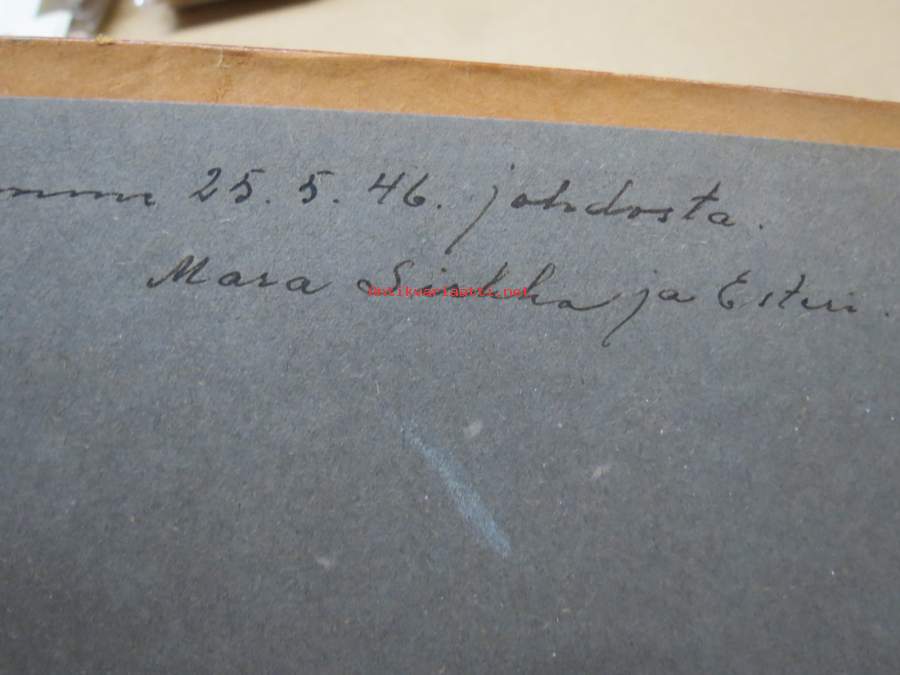 25.5.46. johdosta.
Mara Sirkka ja Esteri.
antikvariaatti.net